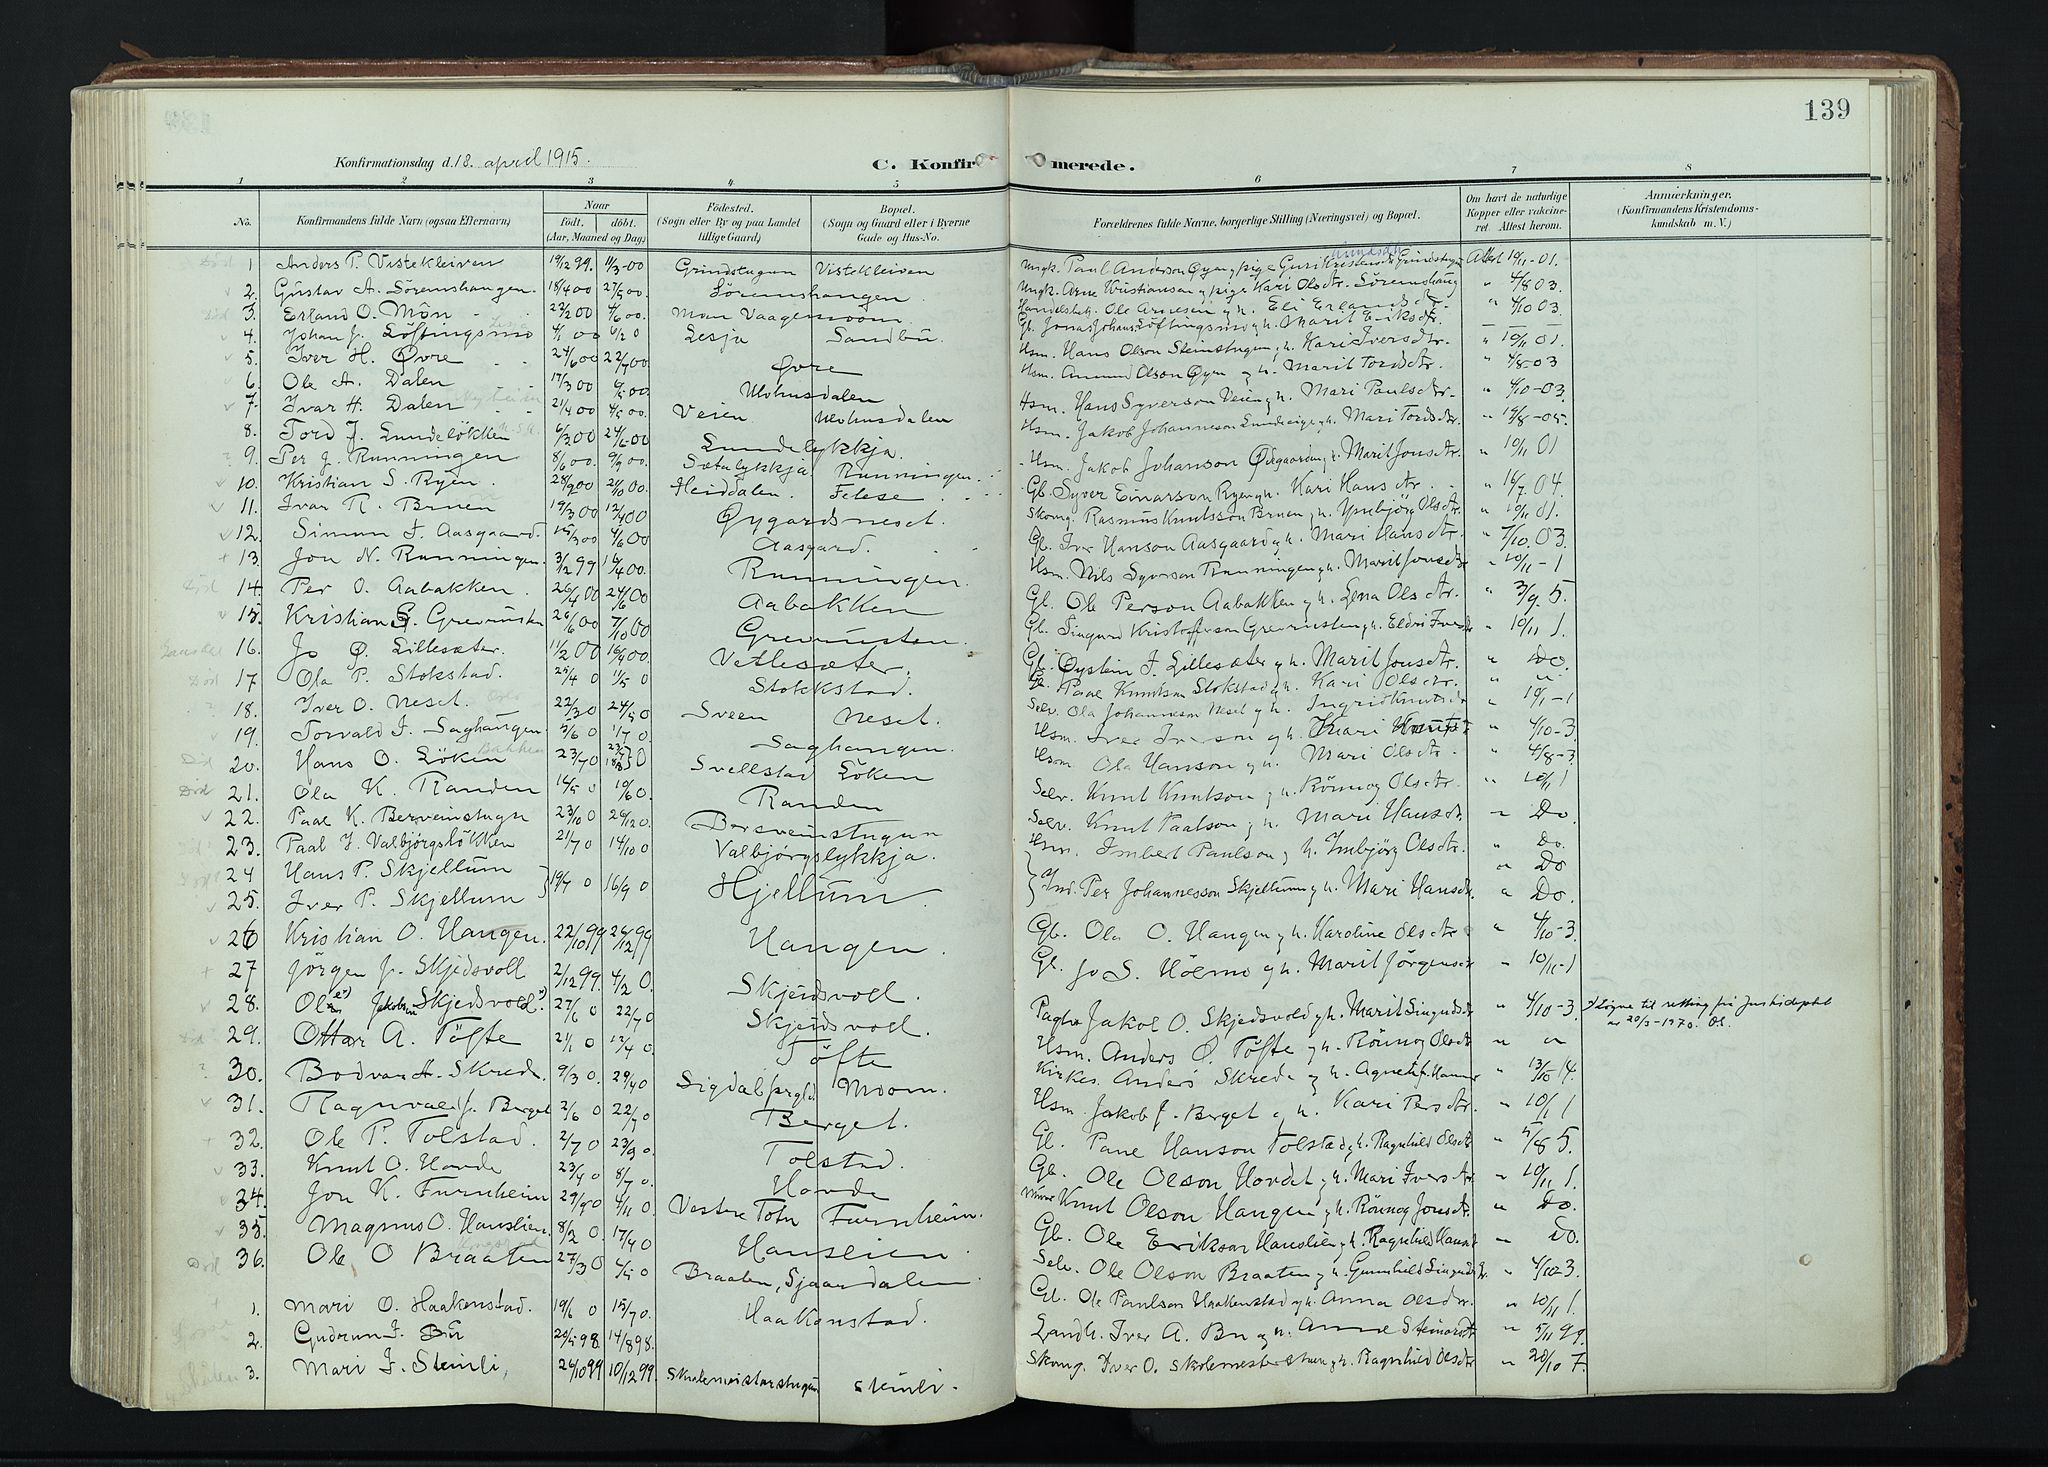 139
Konfirmationsdag d. 18. april 1915. C. Konfirmerede.
1 2 3 4 5 6 7 8
No. Konfirmandens fulde Navn (ogsaa Efternavn) Naar født, døbt. (Aar, Maaned og Dag) Fødested. (Sogn eller By og paa Landet tillige Gaard) Bopæl. (Sogn og Gaard eller i Byerne Gade og Hus-No. Forældrenes fulde Navne, borgerlige Stilling (Næringsvei) og Bopæl. Om havt de naturlige Kopper eller vaccineret. Attest herom. Anmærkninger, (Konfirmandens Kristendomskundskab m. V.)
Død 1 Anders P. Vistekleiven 19/12 99. 11/3-00 Grindstugun Vistekleiven Ungk. Paul Anderson Øyen, pige Guri Grindstugun Attest 10/11-01.
v 2. Gustav A. Sörumshaugen. 18/4 00 27/5 00. Sörumshaugen Ungk. Arne Kristiansen, pige Kari Olsdtr. Sörumshaug " 4/8 03.
Död 3. Erland O. Mön 22/2 00 4/6 00. Mön Vaagerusten Ole Arnesen g. h. Eli Erlandsdtr. " 4/10 03
v 4. Johan J. Löftingsmo 4/1 00 6/2 0 Lesja Sandbu. Gl. Jonas Johans. Löftingsmo g. h. Marit Eriksdtr.
v 5. Iver H. Øvre 24/6 00 22/7 00. Øvre Hsm. Hans Olson Steinstugun g. h. Kari Iversdtr. " 10/11 01.
6. Ole A. Dalen 17/3 00 00. Ulohusdalen Hsm. Amund Olson Øyen g. h. Marit Tordsdtr. " 4/8-03
v 7. Ivar H. Dalen 21/4 00 00. Veien Ulohusdalen Hsm. Hans Syverson Veien g. h. Mari Paulsdtr. " 4/10-03.
8. Tord J. Lundelökken U.S.A. 6/3 00 24/6-00 Lundelykkja. Hsm. Jakob Johanneson g. h. Mari Tordsdtr. "
? 9. Per J. Runningen 8/6 00. 9/9 00. Sætalykkja Runningen. Hsm. Jakob Johanson Ødegaarden g. h. Marit Jonsdtr. " 10/11 01
v 10. Kristian S. Ryen. 28/9 00 21/10 00. Heiddalen. Gb. Syver Einarson Ryen g. h. Kari Hansdtr. " 16/7. 04.
v 11. Ivar R. Bruen 19/3 00 12/4 00 Øygardsneset. Skomg. Rasmus Knutsson Bruen g. h. Ymbjörg Olsdtr. " 10/11 01.
v 12. Simen I. Aasgaard. 15/3 00 4/6 00 Aasgard. Gb. Iver Hanson Aasgaard g. h. Mari Hansdtr. " 7/10. 03.
+ 13. Jon N. Runningen. 3/12 99 16/4 00. Runningen. Hsm. Nils Syverson Runningen g. h. Marit Jonsdtr " 10/11-1
Död 14. Per O. Aabakken. 26/4 00 24/6 00 Aabakken Gl. Ole Person Aabakken g. h. Lena Olsdtr. " 3/9. 5.
v 15. Kristian S. Grevrusten 26/6 00 7/10 00 Grevrusten. Gb. Singurd Kristofferson Grevrusten g. h. Eldri Iversdtr " 10/11 1.
16. Jo Ø. Lillesæter. 11/2 00 16/4 00. Vetlesæter. Gb. Øystein J. Lillesæter g. h. Marit Jonsdtr. " Do.
Död 17. Ola P. Stokstad. 25/4 0 11/5 0 Stokkstad. Gl. Paal Knutson Stokstad g. h. Kari Olsdtr. " "
? 18. Iver O. Neset. Oslo 22/3 0 24/5 0 Sveen Neset. Selv. Ola Johanneson Neset g. h. Ingrid Knutsdtr " 10/11-1
v 19. Torvald I. Saghaugen. 5/6 0 1/7 0. Saghaugen. Hsm. Iver Iverson g. h. Mari Knutsdtr " 4/10-3
Död 20. Hans O. Löken Bakken 23/7 0 0 Svellstad Löken Hsm. Ola Hanson g. h. Mari Olsdtr. " 4/8-3
Död 21. Ola K. Randen 14/5 0 10/6 0. Randen Selv. Knut Knutson g. h. Rönnog Olsdtr. " 10/11 1
v 22. Paal K. Bersveinstugu 23/10 0 20/12 0. Bersveinstugun Selv. Knut Paalson g. h. Mari Hansdtr " Do.
23. Paal I. Valbjørgslökken 21/7 0 14/10 0 Valbjørgslykkja. Hsm. Imbert Paulson g. h. Imbjörg Olsdtr. " Do.
24 Hans P. Skjellum " Do
v 25. Iver P. Skjellum } 19/7 0 16/9 0 Hjellum. } Ind. Per Johannesson Skjellum g. h. Mari Hansdtr " Do.
v 26 Kristian O. Haugen. 22/10 99 26/12 99 Haugen. Gb. Ola O. Haugen g. h. Karoline Olsdtr " 4/10-3.
+ 27 Jörgen J. Skjedsvoll 2/12 99. 4/2 0. Skjeidsvoll. Gl. Jo S. Hölmo g. h. Marit Jörgensdtr " 10/11-1
v 28. Ole x) Jakobsen Skjedsvold. x) 27/6 0 22/7 0 Skjeidsvoll. Jakob O. Skjedsvold g. h. Marit Singurdsdtr " 4/10-3. x) Ifølge til retting fra Justisdeptet av 20/3-1970.
Död 29. Ottar A. Töfte 21/1 0 12/4 0. Töfte Hsm. Anders Ø. Töfte g. h. Rönnog Olsdtr " "
? 30. Bodvar A. Skrede. 9/3 0. 29/4 0 Sigdal prgld. Moom. Kirkes. Anders Skrede g. h. Agnete f. " 13/10 14.
v 31. Ragnvald J. Berget 2/6 0 22/7 0 Berget. Hsm. Jakob J. Berget g. h. Kari Persdtr. " 10/11 1
+ 32. Ole P. Tolstad. 2/7 0 23/9 0. Tolstad. Gl. Hanson Tolstad g. h. Ragnhild Olsdtr " 5/8 5.
v 33. Knut O. Hovde 23/4 0 8/7 0. Hovde Gb. Ole Olson Hovdet g. h. Mari Iversdtr " 10/11 1.
34. Jon K. Furuheim 29/9 0 4/11 0. Vestre Toten Furuheim. Knut Olson Haugen g. h. Rönnog Jonsdtr. " Do.
v 35. Magnus O. Hanslien. 8/2 0. 17/4 0 Hanslien. Gb. Ole Erikson Hanslien g. h. Ragnhild Hansdt " Do.
Död 36. Ole O. Braaten 27/3 0 4/5 0 Braaten, Sjaardalen Selv. Ole Olson Braaten g. h. Gunnhild Singurdsdtr " 4/10-3.
+ 1. Mari O. Haakenstad. 19/6 0 15/7 0. Haakenstad. Gl. Ole Paulson Haakenstad g. h. Anna Olsdtr. " 10/11 1.
2. Gudrun I. Bu 20/5 98. 14/8 98. Landh. Iver A. Bu g. h. Anne Steinarsdtr " 5/11 99.
3. Mari I. Steinli, 26/10 99 10/12 99. Skolemeisterstugun Steinli. Skomg. Iver O. Skolemesterstuen g. h. Ragnhild Olsdtr " 20/10 7.